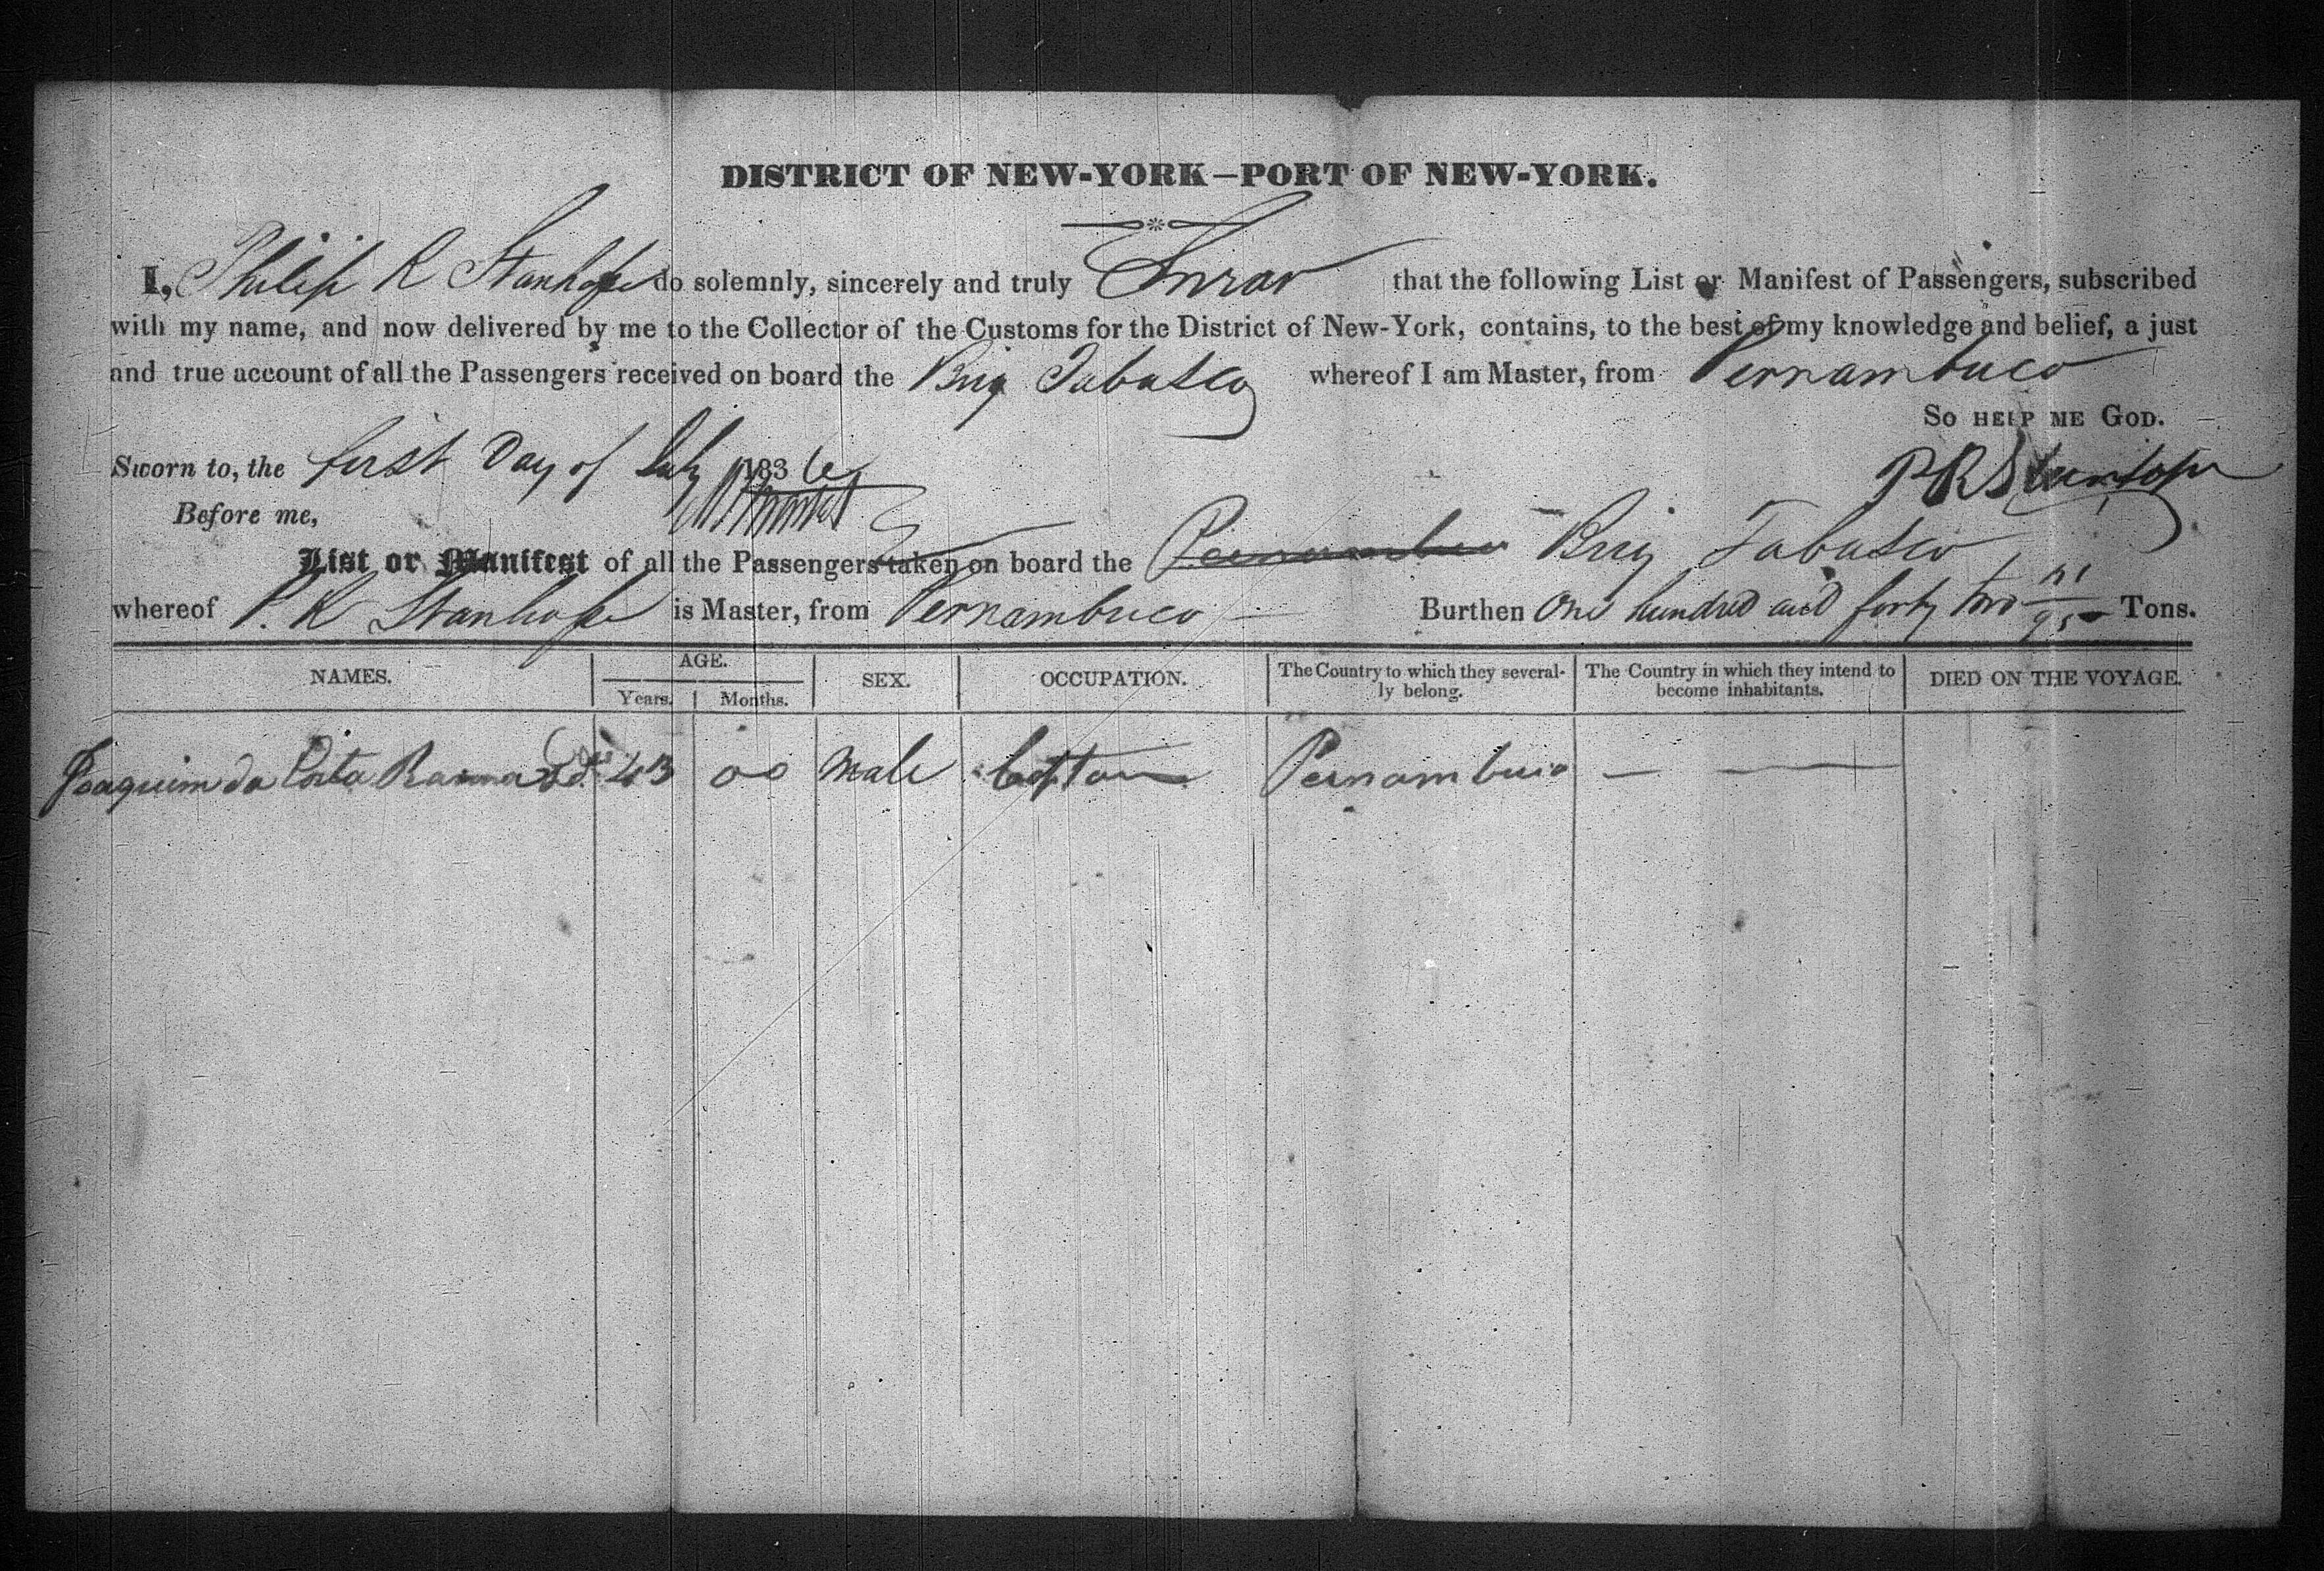 DISTRICT OF NEW-YORK—PORT OF NEW-YORK.
I, Philip R Stanhope do solemnly, sincerely and truly Swear that the following List or Manifest of Passengers, subscribed
with my name, and now delivered by me to the Collector of the Customs for the District of New-York, contains, to the best of my knowledge and belief, a just
and true account of all the Passengers received on board the Brig Tabasco whereof I am Master, from Pernambuco
SO HELP ME GOD.
Sworn to, the first Day of July 1836 P R Stanhope
Before me,
List or Manifest of all the Passengers taken on board the Pernambuco Brig Tabasco
whereof P. R Stanhope is Master, from Pernambuco Burthen One hundred and forty two /95 Tons.
NAMES. AGE. SEX. OCCUPATION. The Country to which they several- The Country in which they intend to DIED ON THE VOYAGE.
Years. Months. ly belong. become inhabitants.
Joaquim da Costa 43 00 Male Pernambuco — —